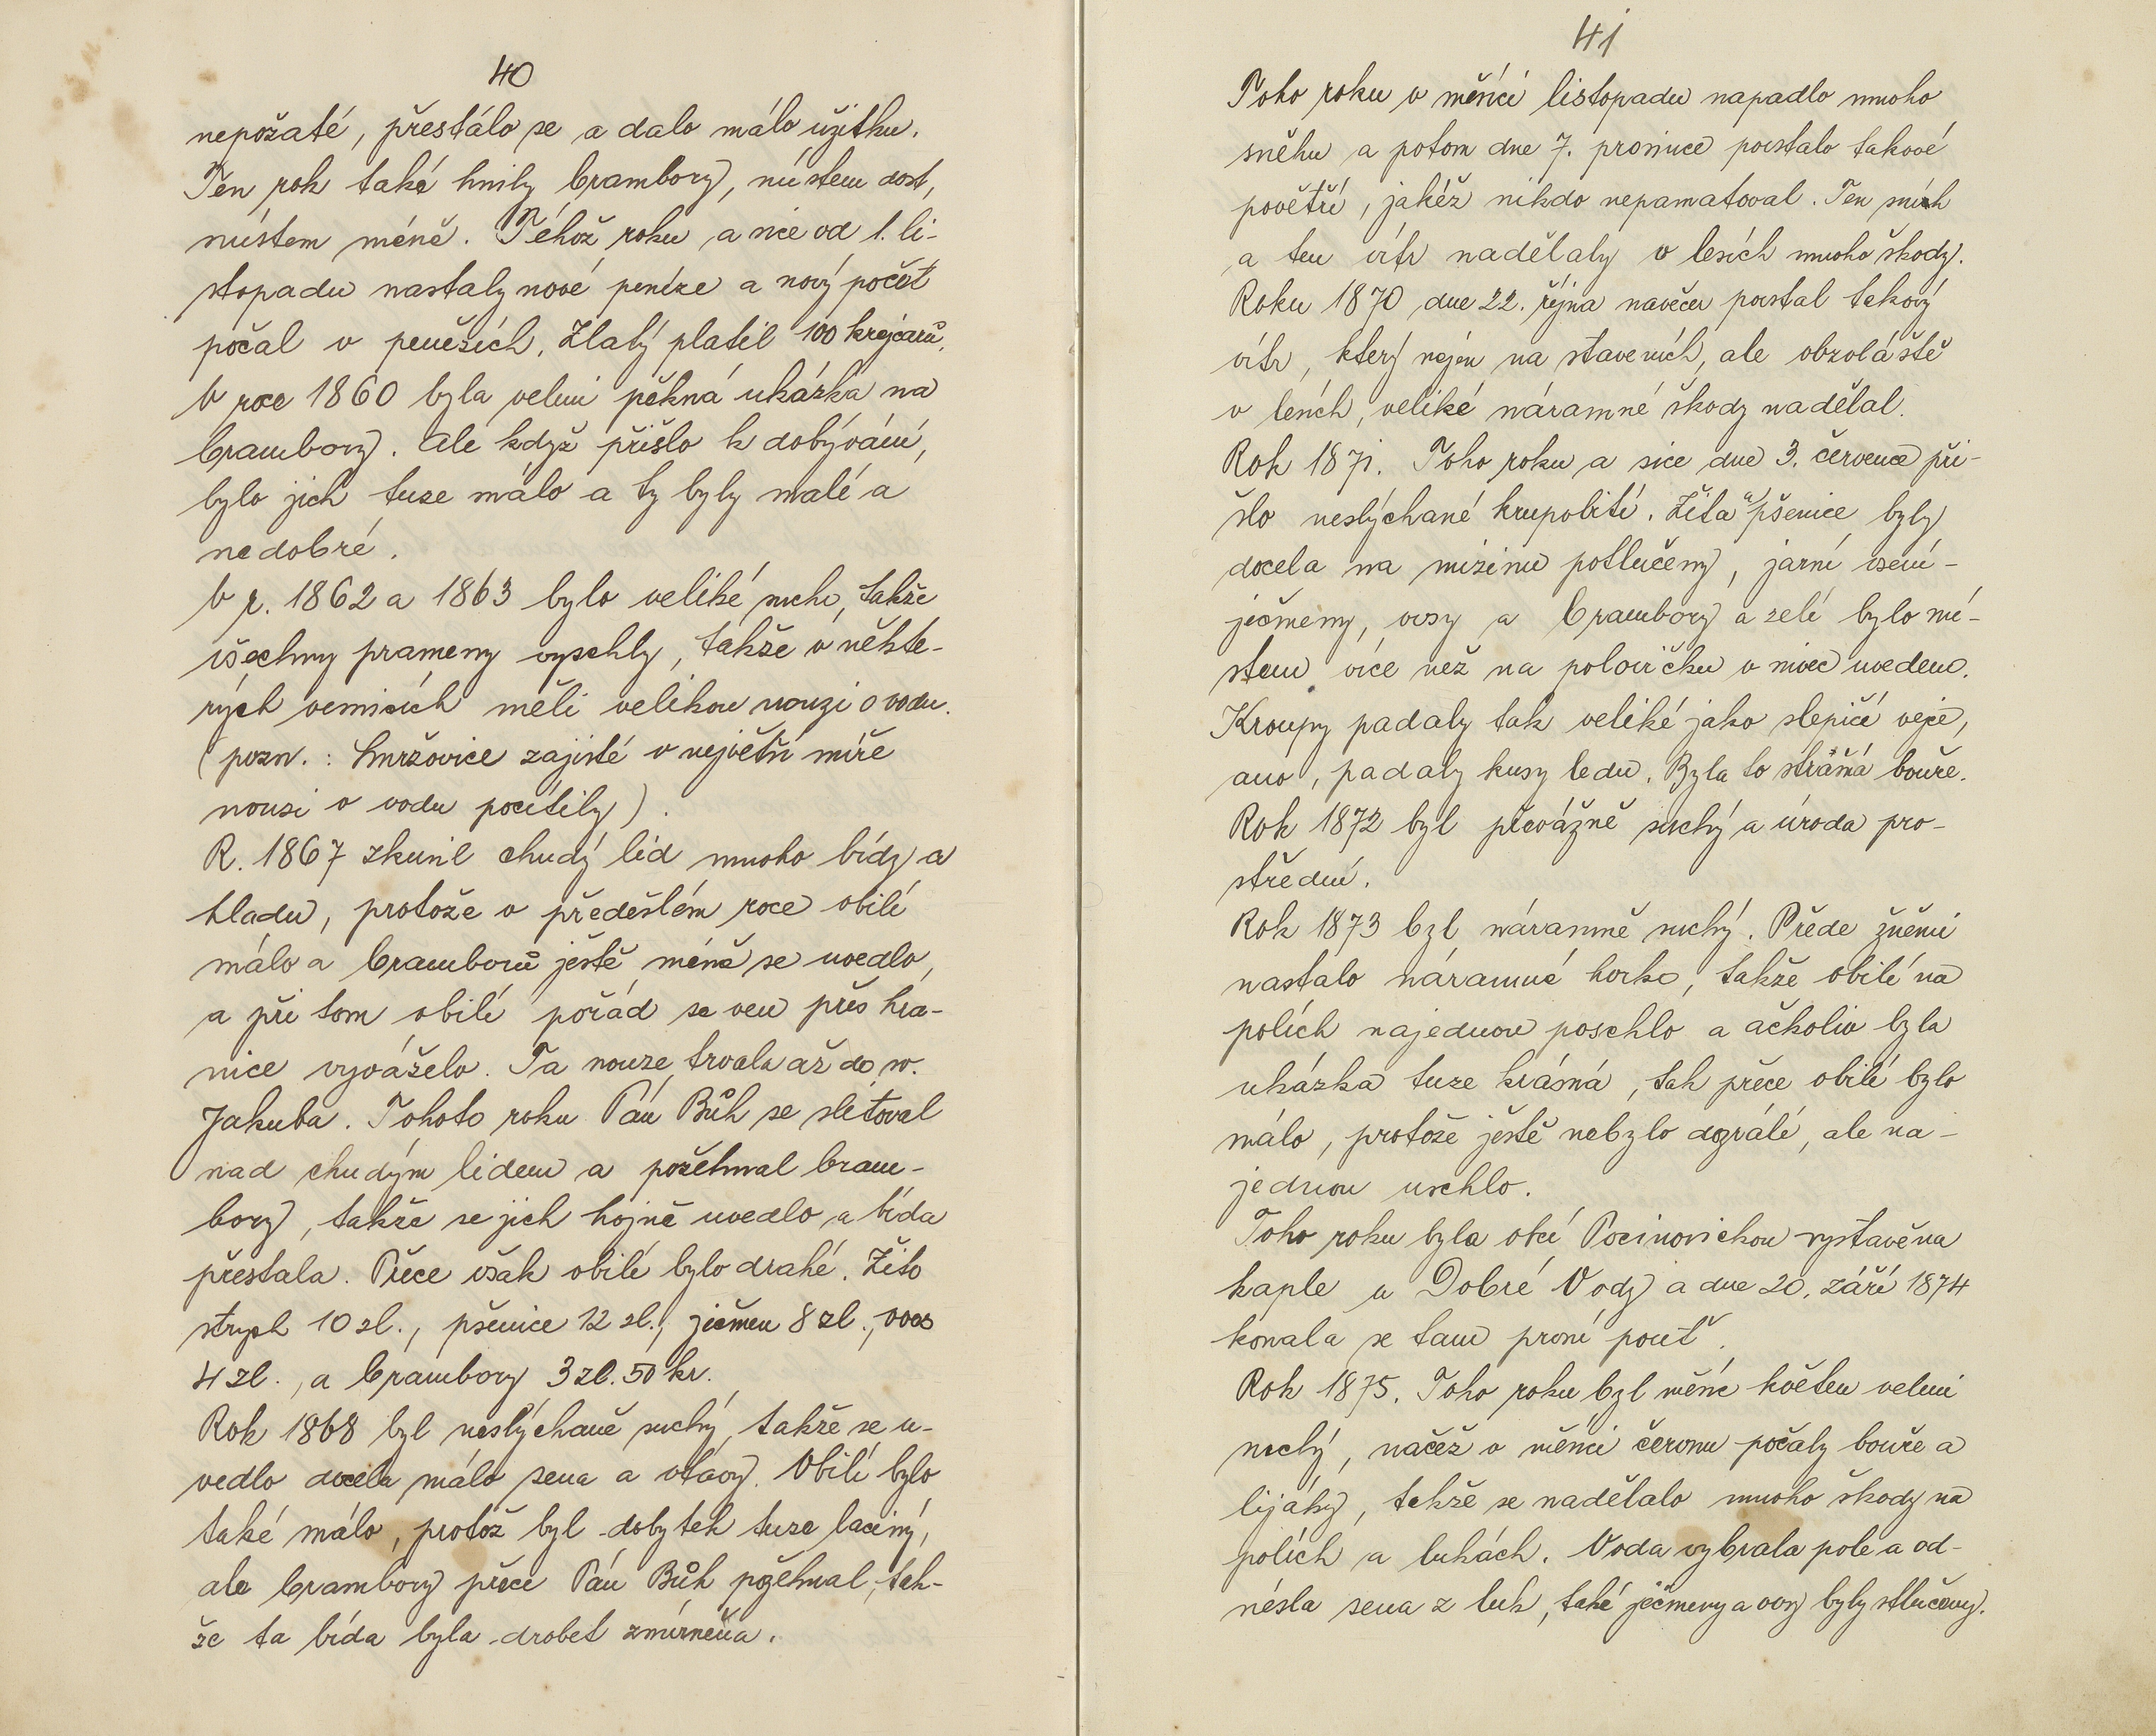 40
nepožaté, přestálo se a dalo málo užitku.
Ten rok také hnily brambory, místem dost,
místem méně. Téhož roku a sice od 1. li-
stopadu nastaly nové peníze a nový počet
počal v penězích. Zlatý platil 100 krejcarů.
V roce 1860 byla velmi pěkná ukázka na
brambory. Ale když přišlo k dobývání,
bylo jich tuze málo a ty byly malé a
nedobré.
V r. 1862 a 1863 bylo veliké sucho, takže
všechny prameny vyschly, takže v někte-
rých vesnicích měli velikou nouzi o vodu.
(pozn.: Smržovice zajisté v největší míře
nouzi o vodu pocítily).
R. 1867 zkusil chudý lid mnoho bídy a
hladu, protože v předešlém roce obilí
málo a bramborů ještě méně se uvedlo,
a při tom obilí pořád se ven přes hra-
nice vyváželo. Ta nouze trvala až do sv.
Jakuba. Tohoto roku Pán Bůh se slitoval
nad chudým lidem a požehnal bram-
bory, takže se jich hojně uvedlo a bída
přestala. Přece však obilí bylo drahé. Žito
strych 10 zl., pšenice 12 zl., ječmen 8 zl., oves
4 zl., a brambory 3 zl. 50 kr.
Rok 1868 byl neslýchaně suchý, takže se u-
vedlo docela málo sena a otavy. Obilí bylo
také málo, protož byl dobytek tuze laciný,
ale brambory přece Pán Bůh požehnal, tak-
že ta bída byla drobet zmírněna.
41
Toho roku v měsíci listopadu napadlo mnoho
sněhu a potom dne 7. prosince povstalo takové
povětří, jakéž nikdo nepamatoval. Ten sníh
a ten vítr nadělaly v lesích mnoho škody.
Roku 1870 dne 22. října navečer povstal takový
vítr, který nejen na staveních, ale obzvláště
v lesích, veliké náramné škody nadělal.
Rok 1871. Toho roku a sice dne 3. července při-
šlo neslýchané krupobití. Žita a pšenice byly
docela na mizinu potlučeny, jarní osení-
ječmeny, ovsy a brambory a zelí bylo mí-
stem více než na polovičku v nivec uvedeno.
Kroupy padaly tak veliké jako slepičí vejce,
ano, padaly kusy ledu. Byla to strašná bouře.
Rok 1872 byl převážně suchý a úroda pro-
střední.
Rok 1873 byl náramně suchý. Přede žněmi
nastalo náramné horko, takže obilí na
polích najednou poschlo a ačkoliv byla
ukázka tuze krásná, tak přece obilí bylo
málo, protože ještě nebylo dozrálé, ale na-
jednou uschlo.
Toho roku byla obcí Pocinovickou vystavěna
kaple u Dobré Vody a dne 20. září 1874
konala se tam první pouť.
Rok 1875. Toho roku byl měsíc květen velmi
suchý, načež v měsíci červnu počaly bouře a
lijáky, takže se nadělalo mnoho škody na
polích a lukách. Voda vybrala pole a od-
nésla sena z luk, také ječmeny a ovsy byly stlučeny.